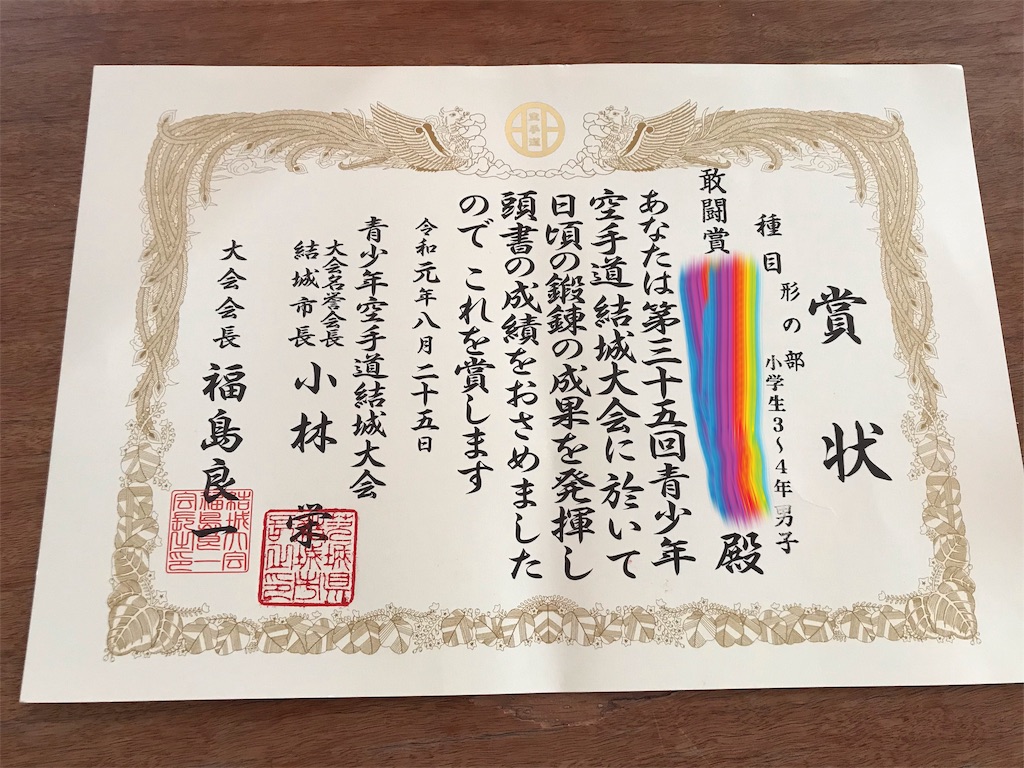 賞状
種目 形の部 小学生3〜4年男子
敢闘賞
殿
あなたは第三十五回青少年
空手道結城大会に於いて
日頃の鍛錬の成果を発揮し
頭書の成績をおさめました
ので これを賞します
令和元年八月二十五日
青少年空手道結城大会
大会名誉会長
結城市長 小林 栄
大会会長 福島良一
空手道